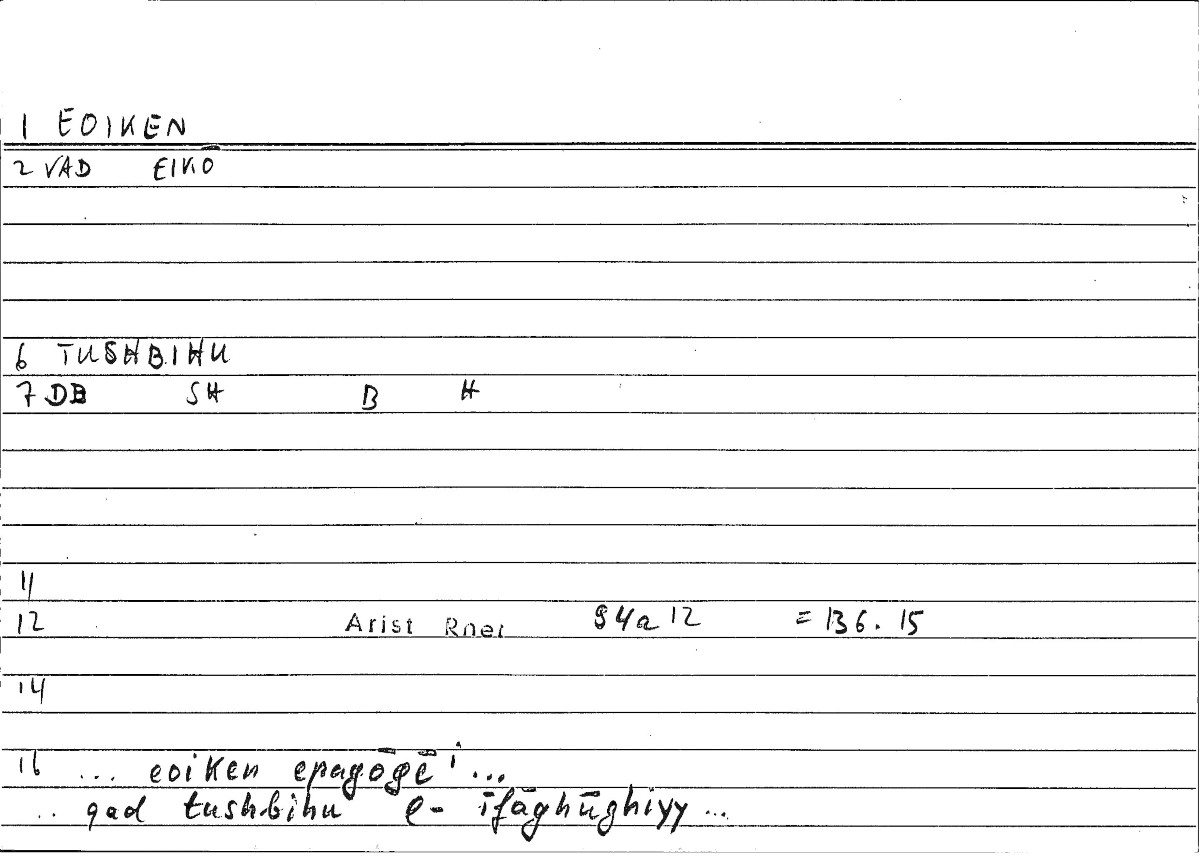 1 EOIKEN
2 VAD EIKŌ
6 TUSHBIHU
7 DB SH B H
11
12 Arist Rhet 94a12 = 136.15
14
16 ... eoiken epagōgēⁱ ...
.. qad tushbihu l- īfāghūghiyy ...